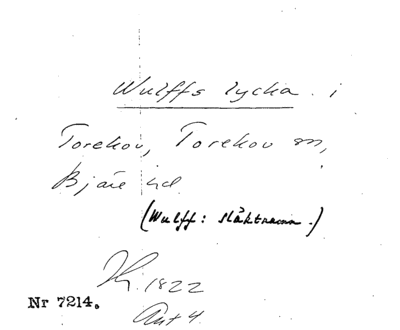 Wulffs lycka. i
Torekov, Torekov sn,
Bjäre hd
(Wulff: släktnamn.)
1822
Nr 7214.
Akt 4